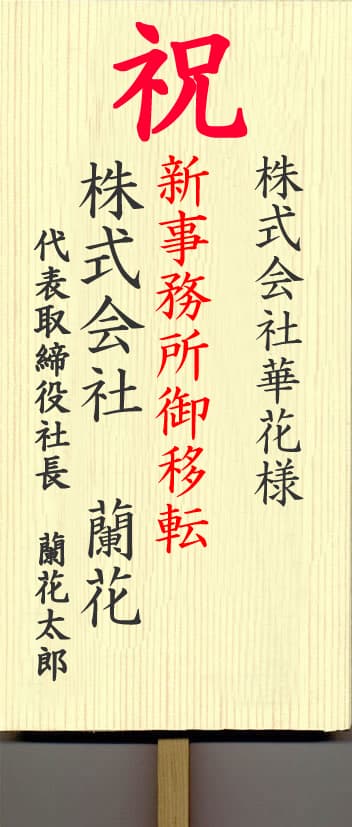 祝
株式会社華花様
新事務所御移転
株式会社 蘭花
代表取締役社長 蘭花太郎